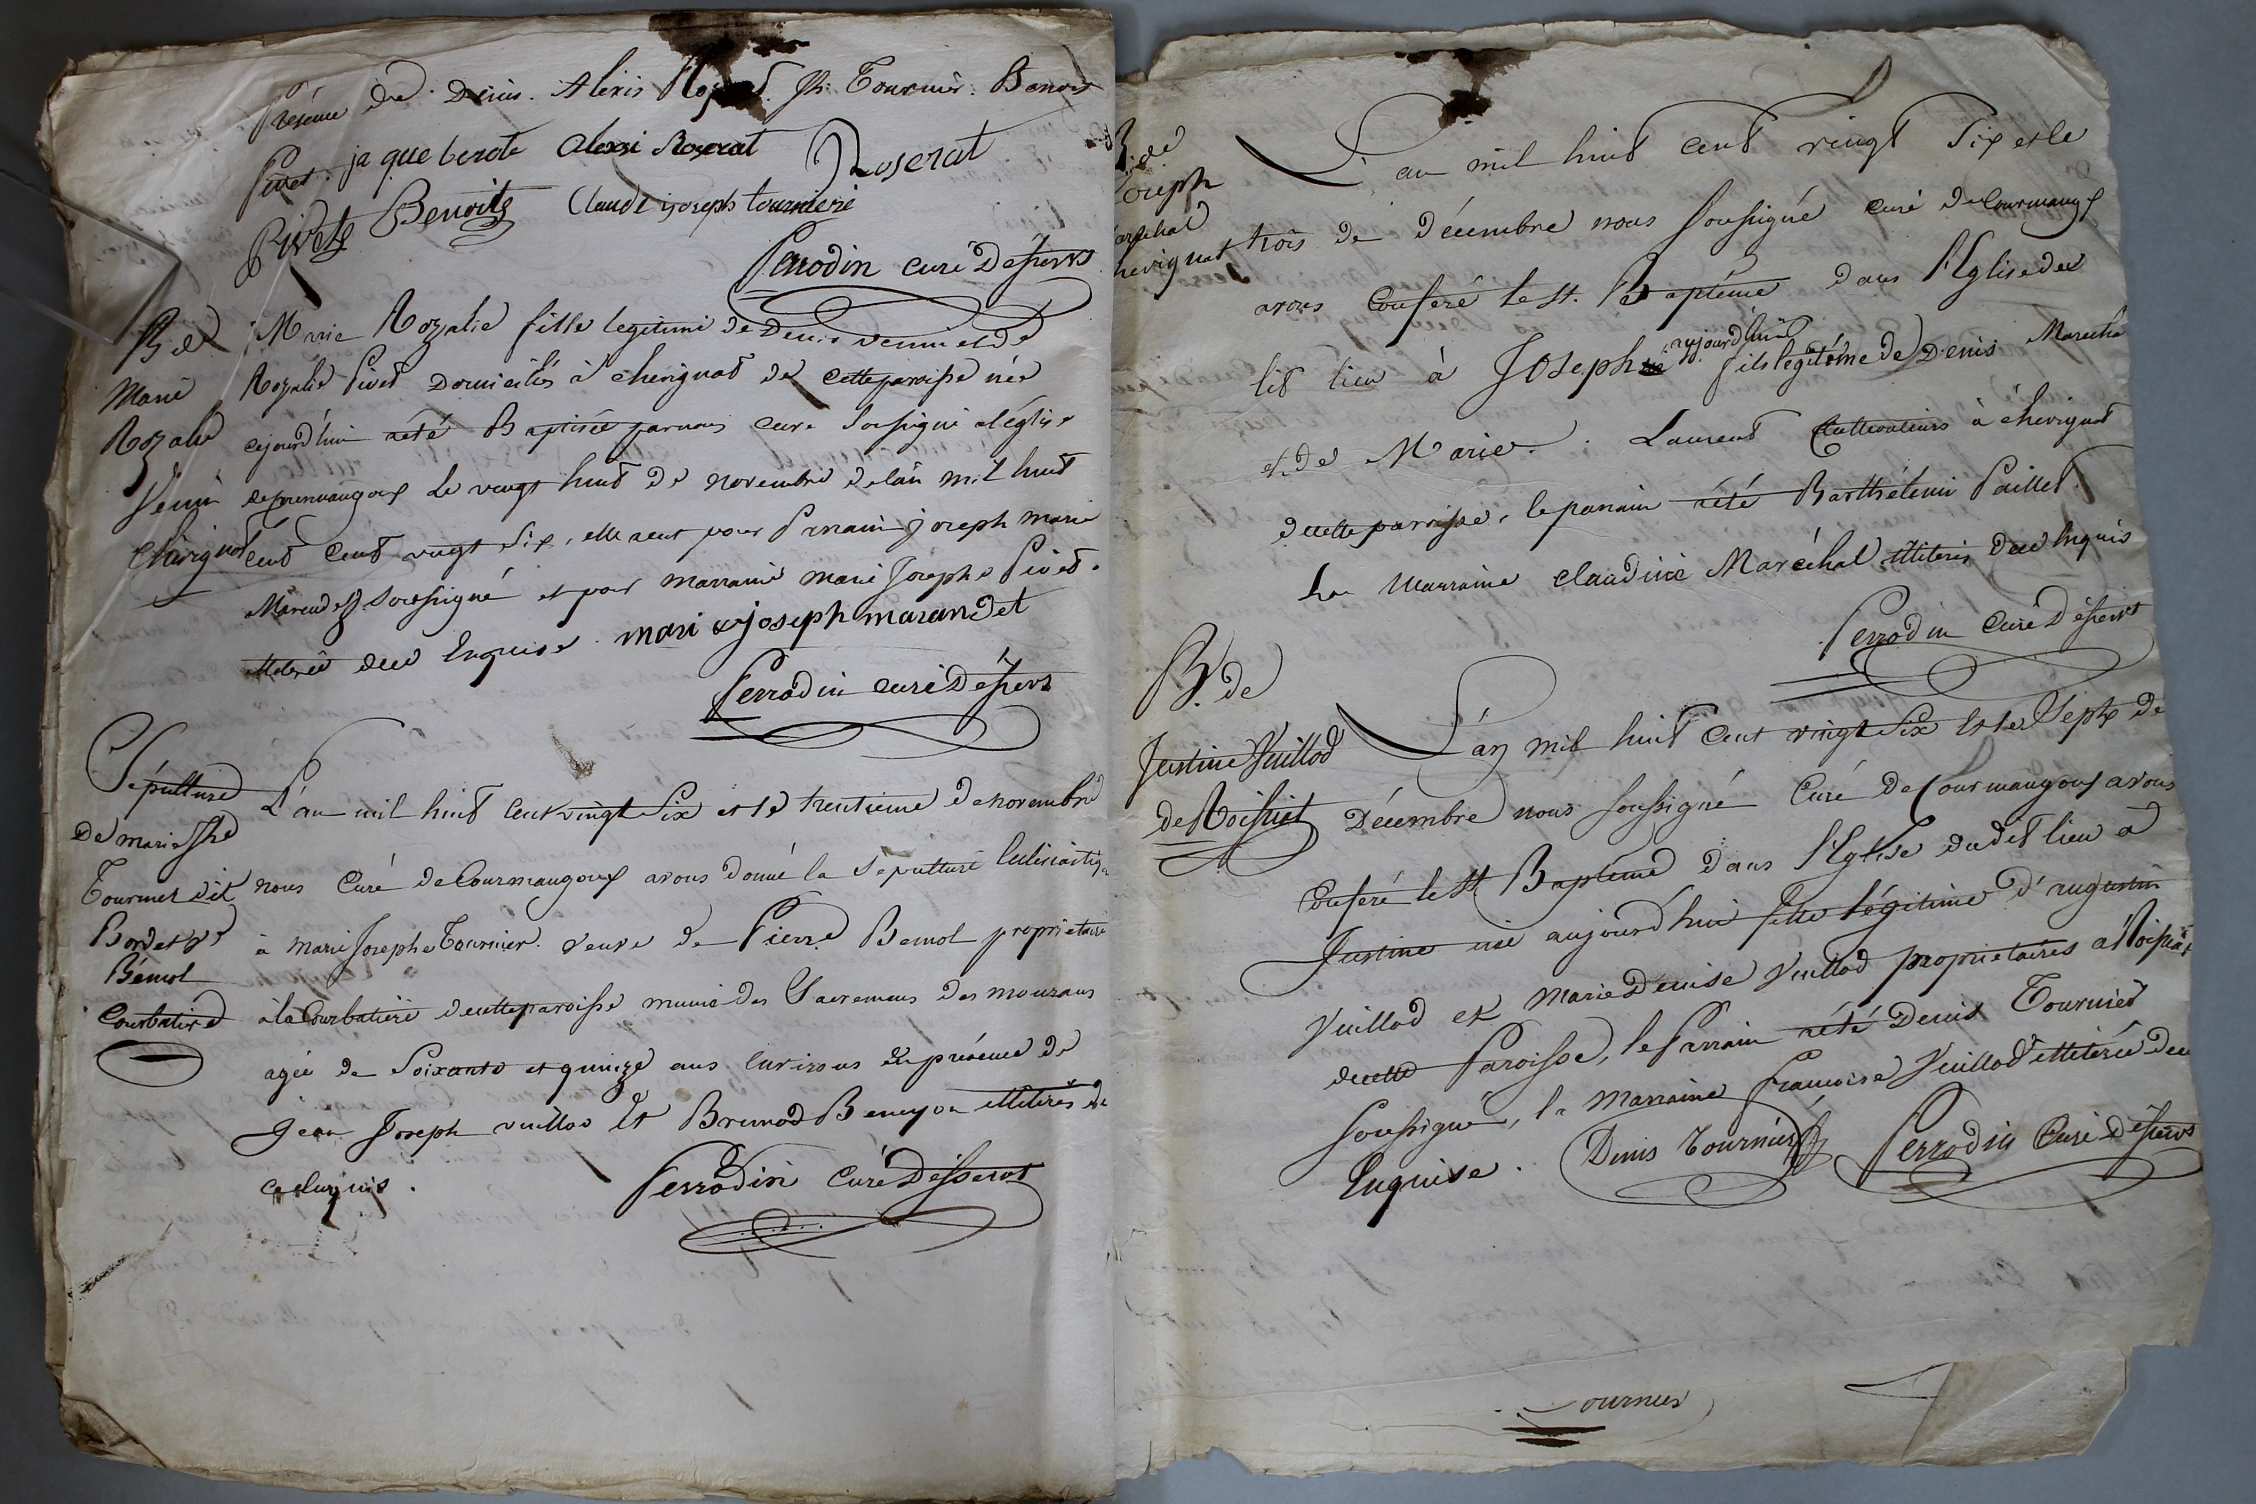 présence de Denis. Alexis Rozerat. Jh. Tournier. Benoit
Pivet. ja que berote Alexi Roserat Roserat
Pivet Benoite Claude ijoseph tourniere
Perrodin curé Désservt
B. de
Marie
Rozalie
Venin
Chevignat
Marie Rozalie fille legitime de Denis venin et de
Rozalie Pivet Domiciliés à chevignat de cette paroisse née
cejourd'hui a été Baptisée par nous curé Soussigné à l'église
de Courmangoux Le vingt huit de novembre de l'an mil huit
cent vingt Six, elle a eut pour Parrain joseph marie
Marendet Soussigné et pour marraine marie Josephe Pivet
illiterée due Enquise. mari joseph marandet
Perrodin curé Désservt
Sépulture
De marie Jhe
Tournier dit
Bordet Ve
Bémol
Courbatire
L'an mil huit cent vingt Six et le trentieme de novembre
nous Curé de Courmangoux avons donné la Sépulture Eclésiastiq
à marie Josephe Tournier. veuve de Pierre Bemol propriétaire
à la Courbatiere de cette paroisse munie des Sacremens des mourans
agée de Soixante et quinze ans Environs en présence de
jean Joseph vuillod Et Brunod Benoyon illiterés de
ce Enquis.
Perrodin Curé Désservt
B. de
Joseph
Maréchal
Chevignat
L'an mil huit cent vingt Six et le
trois de Décembre nous Soussigné curé de Courmangx
avons Conferé le St. Baptême dans l'Eglise du
dit lieu à Joseph né aujourd'hui fils légitime de Denis Marecha
et de Marie. Laurent Cultivateurs à chevignat
de cette paroisse, le parrain a été Barthélemi Paillet
La Marraine claudine Maréchal illiteris due Enquis
Perrodin Curé Désservt
B. de
Justine Vuillod
de Roissiat
L'an mil huit cent vingt Six et le Sept de
Décembre nous Soussigné Curé de Courmangoux avons
Conferé le St Baptême dans l'Eglise dudit lieu à
Justine née aujourd'hui fille légitime d'augustin
Vuillod et Marie Denise Vuillod propriétaires à Roissiat
de cette Paroisse, le Parrain a été Denis Tournier
Soussigné, la Marraine françoise Vuillod illiterée due
Enquise. Denis Tournier Perrodin Curé Désservt
Tournier